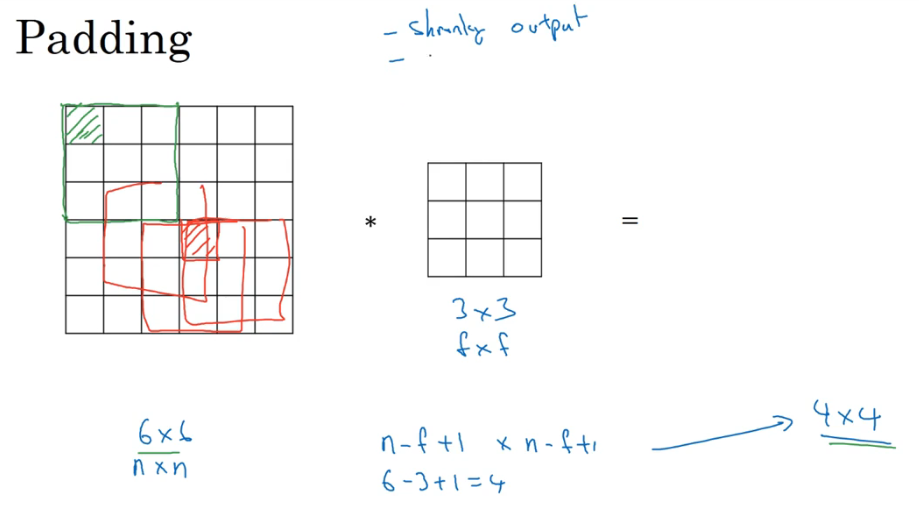 Padding
- shrinky output
-
*
=
3 × 3
f × f
6 × 6
n × n
n - f + 1 × n - f + 1
6 - 3 + 1 = 4
4 × 4